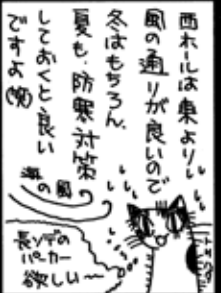 西ホールは東より
風の通りが良いので
冬はもちろん、
夏も、防寒対策
しておくと良い
ですよ(笑)
海の風
長ソデの
パーカー
欲しい〜